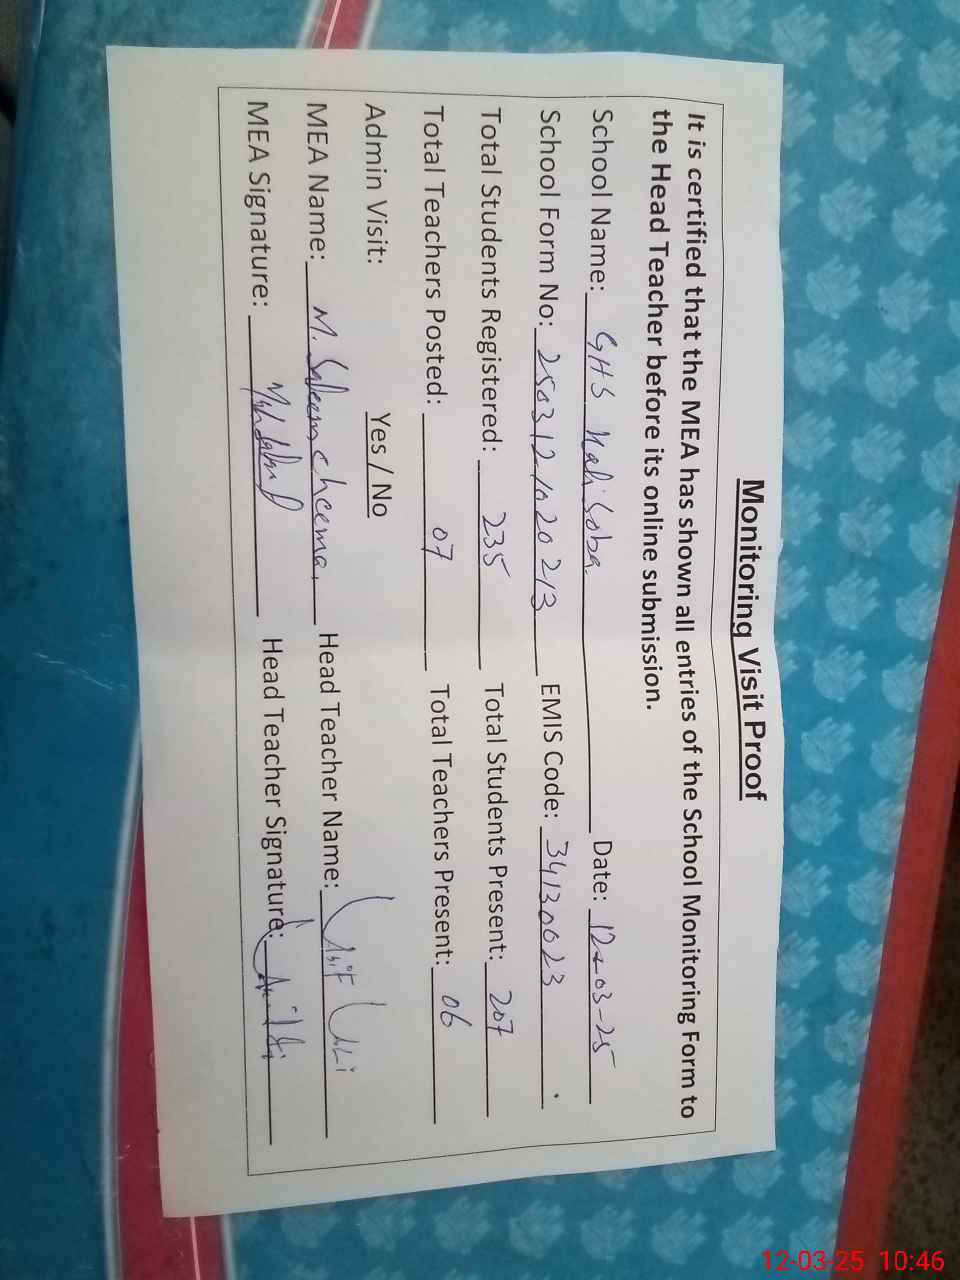 Monitoring Visit Proof
It is certified that the MEA has shown all entries of the School Monitoring Form to
the Head Teacher before its online submission.
School Name: GHS Date: 12-03-25
School Form No: EMIS Code: 34130023
Total Students Registered: 235 Total Students Present: 207
Total Teachers Posted: 07 Total Teachers Present: 06
Admin Visit: Yes / No
MEA Name: M. Saleem cheema. Head Teacher Name: Asif Ali
MEA Signature: Head Teacher Signature:
12-03-25 10:46